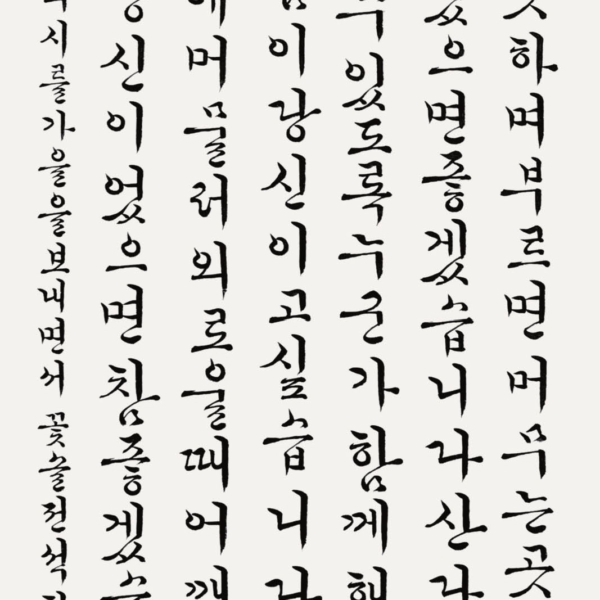 하며부르면머무는곳
으면좋겠습니다산다
수있도록누군가함께해
이당신이고싶습니다
에머물러외로울때어깨
신이었으면참좋겠습
시를가을을보내면서 꽃술전석